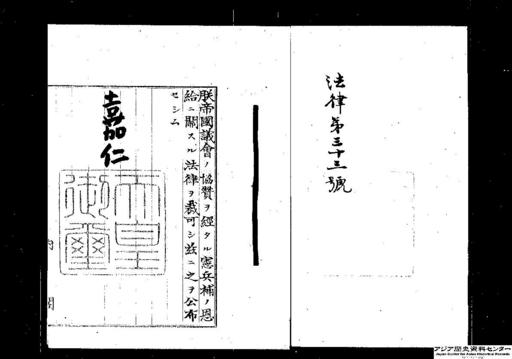 法律第三十三號
朕帝國議會ノ協贊ヲ經タル憲兵補ノ恩
給ニ關スル法律ヲ裁可シ玆ニ之ヲ公布
セシム
嘉仁
天皇
御璽
內閣
アジア歴史資料センター
Japan Center for Asian Historical Records